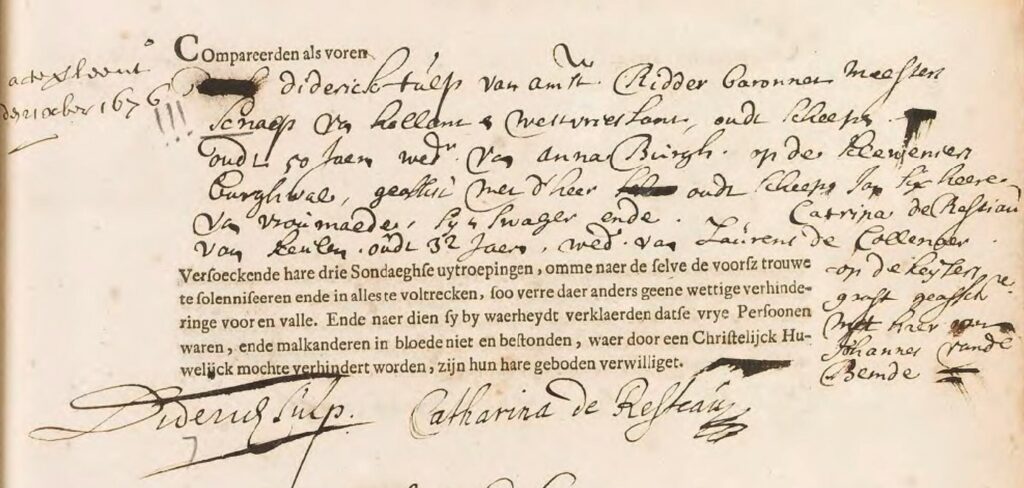 acte verleent
den 21 october 1676
Compareerden als voren
diderick tulp van amst Ridder baronnet Meester
Schaep van hollant & westvrieslant, oudt scheepn
oudt 50 Jaer wedr. van Anna Burgh. op de
burghwal, geassist met d'heer oudt scheepn Jan Six heere
van vroumade, syn swager ende. Catrina de Restiau
van keulen oudt 32 Jaer, wede. van Laurens de Collenoer
Versoeckende hare drie Sondaeghse uytroepingen, omme naer de selve de voorsz trouwe
te solenniseeren ende in alles te voltrecken, soo verre daer anders geene wettige verhinde-
ringe voor en valle. Ende naer dien sy by waerheydt verklaerden datse vrye Persoonen
waren, ende malkanderen in bloede niet en bestonden, waer door een Christelijck Hu-
welijck mochte verhindert worden, zijn hun hare geboden verwilliget.
op de keysers
graft geassist
met haer
Johannes vande
Bemde
Diderick Tulp. Catharina de Resteau